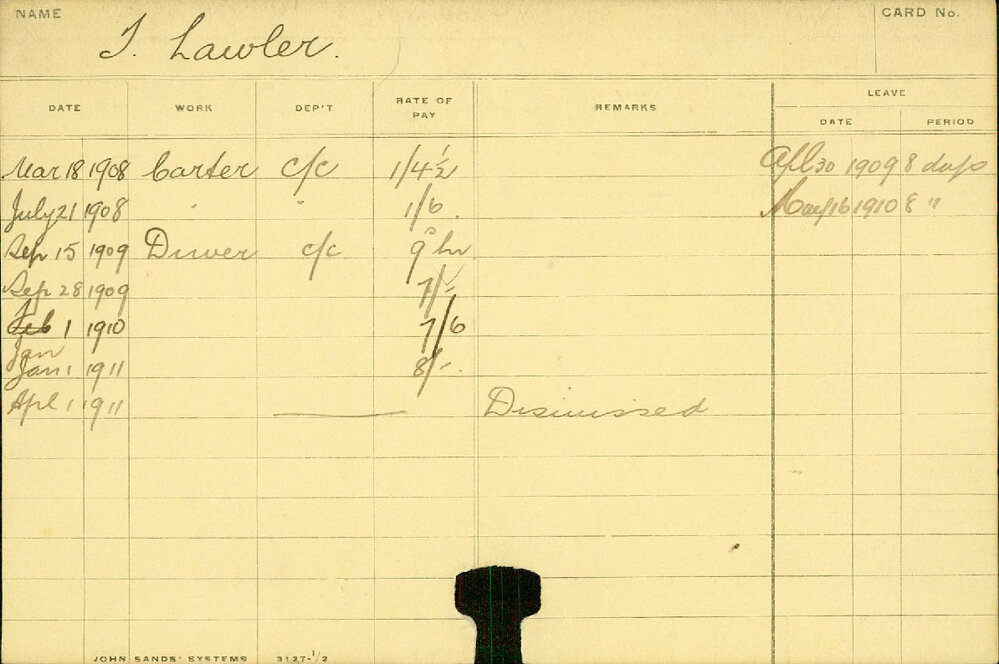 NAME
CARD No.
T. Lawler.
DATE WORK DEP'T RATE OF PAY REMARKS LEAVE
DATE PERIOD
Mar 18 1908 Carter c/c 1/4½ Apl 30 1909 8 days
July 21 1908 " " 1/6. May 16 1910 8 "
Sep 15 1909 Driver c/c 9ᴰ hr
Sep 28 1909 7/-
Feb 1 1910 7/6
Jan
Jan 1 1911 8/-.
Apl 1 1911 Dismissed
JOHN SANDS' SYSTEMS 3127-1/2